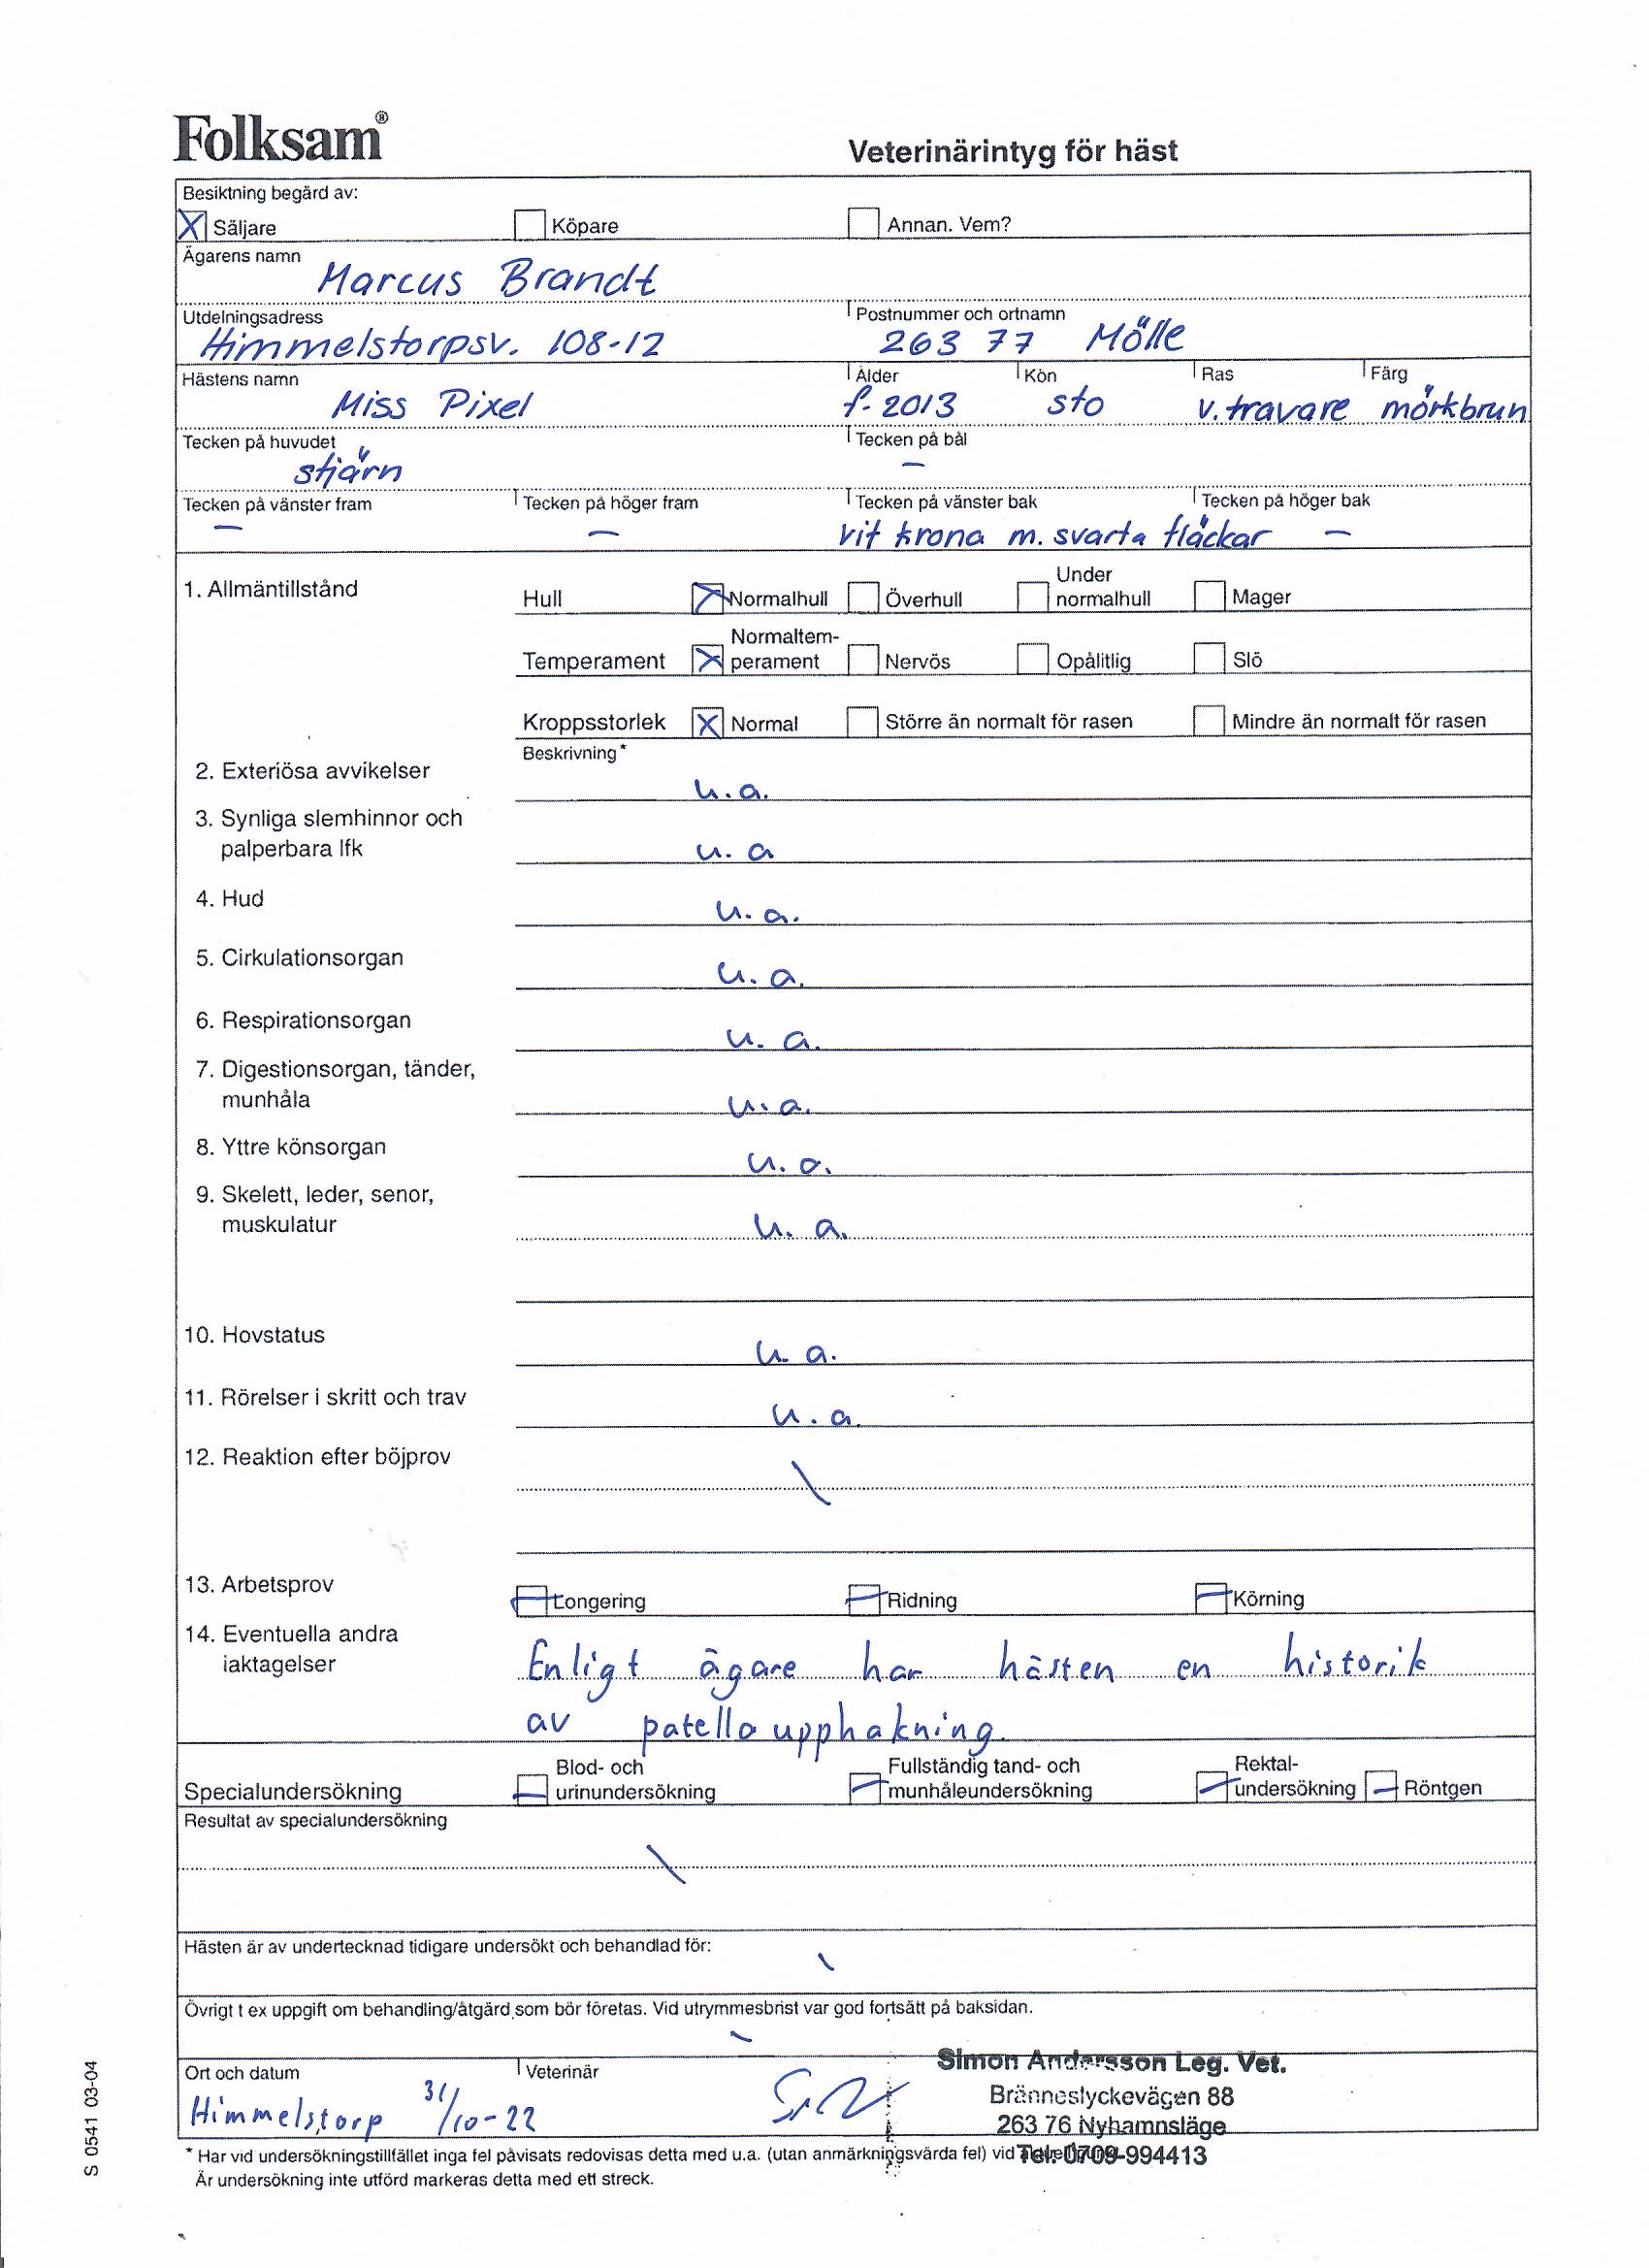 Folksam®
Veterinärintyg för häst
Besiktning begärd av:
X Säljare Köpare Annan. Vem?
Ägarens namn
Marcus Brandt
Utdelningsadress Postnummer och ortnamn
Himmelstorpsv. 108-12 263 77 Mölle
Hästens namn Ålder Kön Ras Färg
Miss Pixel f. 2013 sto v. travare mörkbrun
Tecken på huvudet Tecken på bål
stjärn –
Tecken på vänster fram Tecken på höger fram Tecken på vänster bak Tecken på höger bak
– – vit krona m. svarta fläckar –
1. Allmäntillstånd
Hull X Normalhull Överhull Under normalhull Mager
Temperament X Normaltem-perament Nervös Opålitlig Slö
Kroppsstorlek X Normal Större än normalt för rasen Mindre än normalt för rasen
Beskrivning*
2. Exteriösa avvikelser u.a.
3. Synliga slemhinnor och
palperbara lfk u.a
4. Hud u.a.
5. Cirkulationsorgan u.a.
6. Respirationsorgan u.a.
7. Digestionsorgan, tänder,
munhåla u.a.
8. Yttre könsorgan u.a.
9. Skelett, leder, senor,
muskulatur u.a.
10. Hovstatus u.a.
11. Rörelser i skritt och trav u.a.
12. Reaktion efter böjprov
13. Arbetsprov Longering Ridning Körning
14. Eventuella andra
iaktagelser Enligt ägare har hästen en historik
av patellaupphakning.
Specialundersökning Blod- och urinundersökning Fullständig tand- och munhåleundersökning Rektal-undersökning Röntgen
Resultat av specialundersökning
Hästen är av undertecknad tidigare undersökt och behandlad för:
Övrigt t ex uppgift om behandling/åtgärd som bör företas. Vid utrymmesbrist var god fortsätt på baksidan.
Ort och datum Veterinär
Himmelstorp 31/10-22
Simon Andersson Leg. Vet.
Bränneslyckevägen 88
263 76 Nyhamnsläge
Tel: 0709-994413
* Har vid undersökningstillfället inga fel påvisats redovisas detta med u.a. (utan anmärkningsvärda fel) vid
Är undersökning inte utförd markeras detta med ett streck.
S 0541 03-04